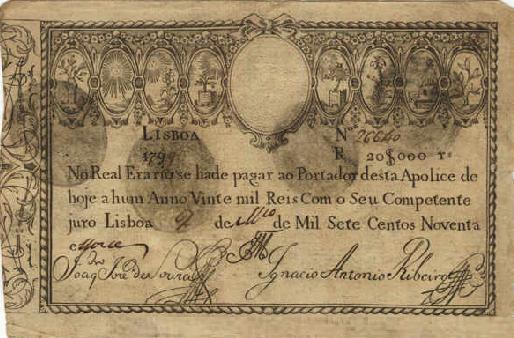 LISBOA Nº 26640
1799 R. 20$000 rs
No Real Erario se hade pagar ao Portador desta Apolice de
hoje a hum Anno Vinte mil Reis Com o Seu Competente
juro Lisboa 9 de de Mil Sete Centos Noventa
e nove
Joaq Joze de Souza Ignacio Antonio Ribeiro